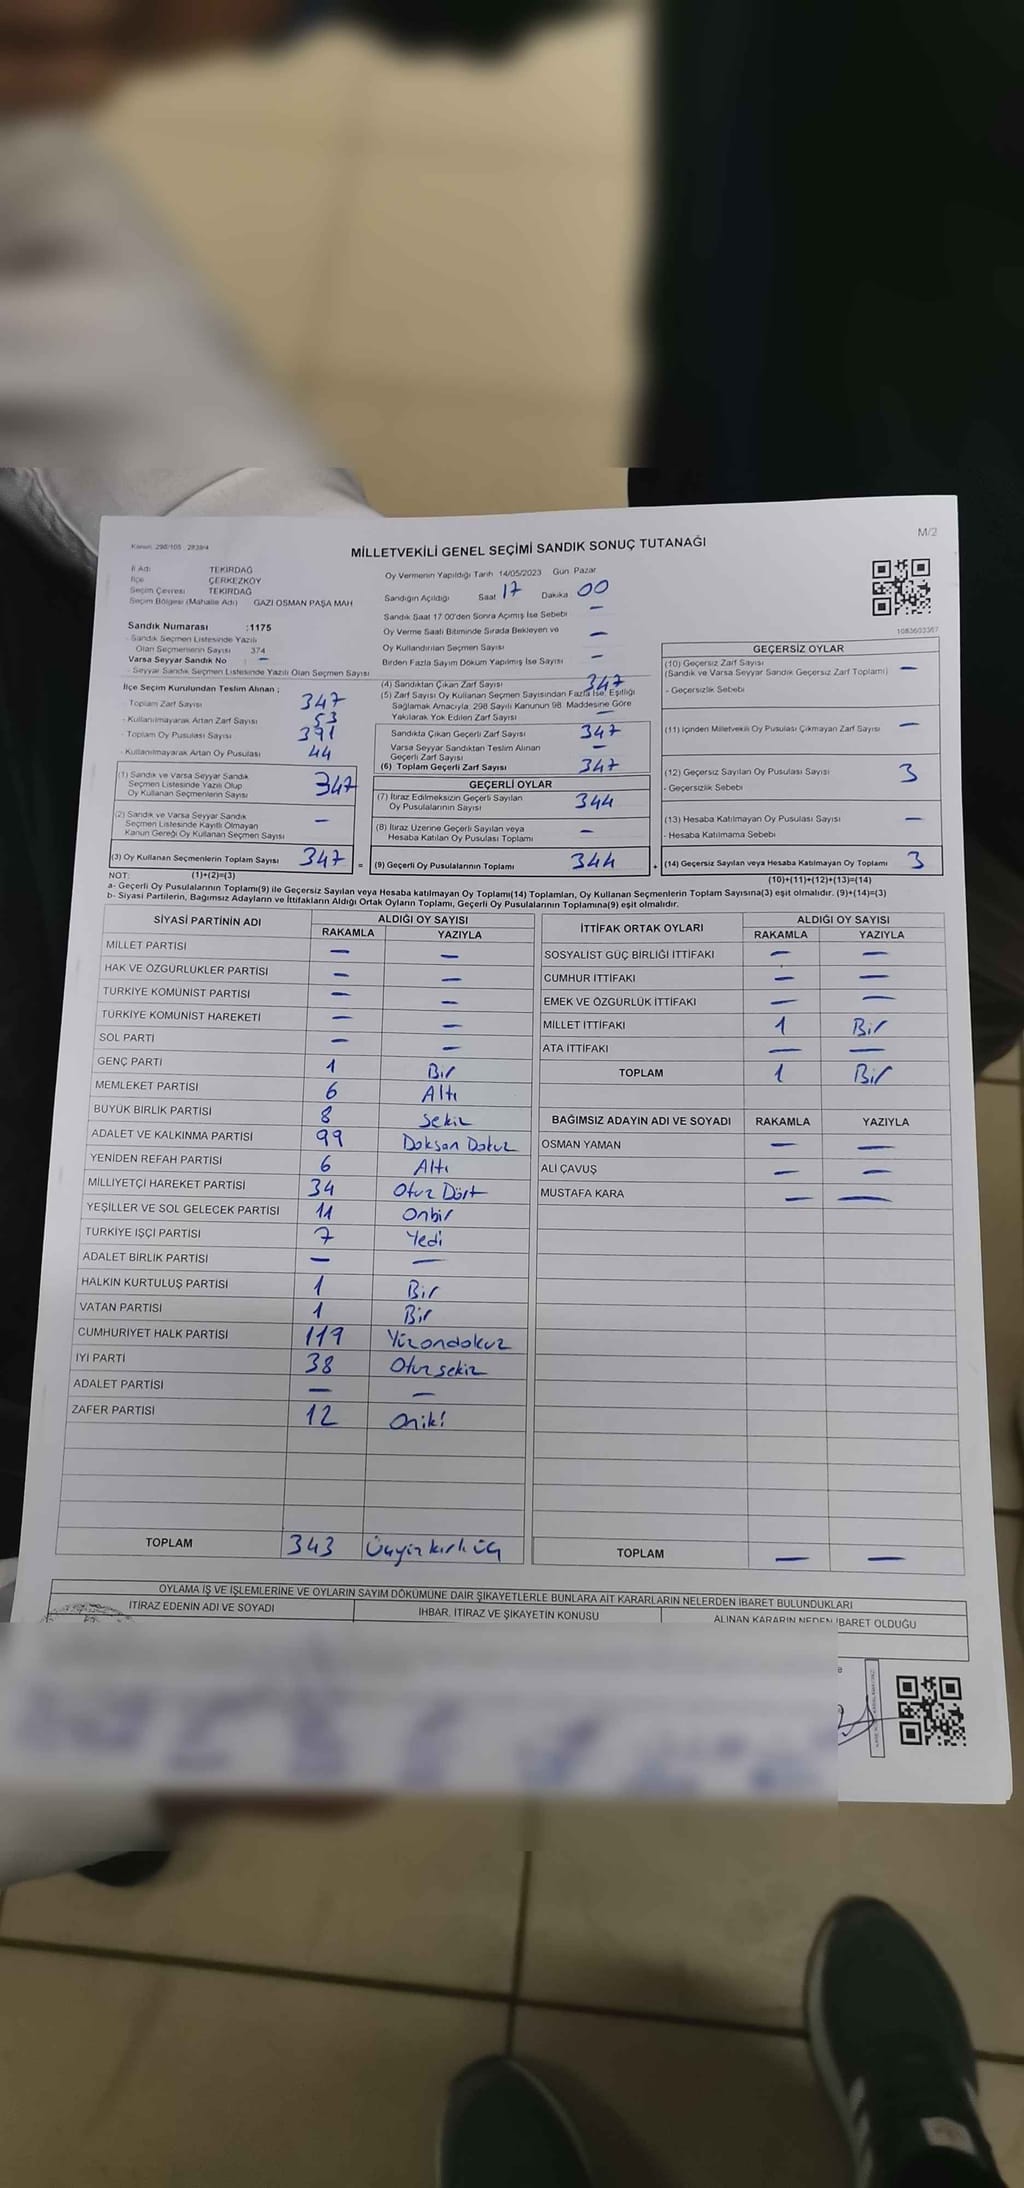 Kanun: 298/105 , 2839/4
M/2
MİLLETVEKİLİ GENEL SEÇİMİ SANDIK SONUÇ TUTANAĞI
İl Adı TEKİRDAĞ
İlçe ÇERKEZKÖY
Seçim Çevresi TEKİRDAĞ
Seçim Bölgesi (Mahalle Adı) GAZİ OSMAN PAŞA MAH
Oy Vermenin Yapıldığı Tarih 14/05/2023 Gün Pazar
Sandığın Açıldığı Saat 17 Dakika 00
Sandık Saat 17:00'den Sonra Açımış İse Sebebi —
Oy Verme Saati Bitiminde Sırada Bekleyen ve —
Oy Kullandırılan Seçmen Sayısı
Birden Fazla Sayım Döküm Yapılmış İse Sayısı —
1083603367
Sandık Numarası :1175
- Sandık Seçmen Listesinde Yazılı
Olan Seçmenlerin Sayısı 374
Varsa Seyyar Sandık No : —
- Seyyar Sandık Seçmen Listesinde Yazılı Olan Seçmen Sayısı
İlçe Seçim Kurulundan Teslim Alınan ;
- Toplam Zarf Sayısı 347
- Kullanılmayarak Artan Zarf Sayısı 53
- Toplam Oy Pusulası Sayısı 391
- Kullanılmayarak Artan Oy Pusulası 44
(1) Sandık ve Varsa Seyyar Sandık
Seçmen Listesinde Yazılı Olup
Oy Kullanan Seçmenlerin Sayısı 347
(2) Sandık ve Varsa Seyyar Sandık
Seçmen Listesinde Kayıtlı Olmayan
Kanun Gereği Oy Kullanan Seçmen Sayısı —
(3) Oy Kullanan Seçmenlerin Toplam Sayısı 347 =
(4) Sandıktan Çıkan Zarf Sayısı 347
(5) Zarf Sayısı Oy Kullanan Seçmen Sayısından Fazla İse, Eşitliği
Sağlamak Amacıyla; 298 Sayılı Kanunun 98. Maddesine Göre
Yakılarak Yok Edilen Zarf Sayısı —
Sandıkta Çıkan Geçerli Zarf Sayısı 347
Varsa Seyyar Sandıktan Teslim Alınan
Geçerli Zarf Sayısı —
(6) Toplam Geçerli Zarf Sayısı 347
GEÇERLİ OYLAR
(7) İtiraz Edilmeksizin Geçerli Sayılan
Oy Pusulalarının Sayısı 344
(8) İtiraz Üzerine Geçerli Sayılan veya
Hesaba Katılan Oy Pusulası Toplamı —
(9) Geçerli Oy Pusulalarının Toplamı 344 +
GEÇERSİZ OYLAR
(10) Geçersiz Zarf Sayısı
(Sandık ve Varsa Seyyar Sandık Geçersiz Zarf Toplamı) —
- Geçersizlik Sebebi
(11) İçinden Milletvekili Oy Pusulası Çıkmayan Zarf Sayısı —
(12) Geçersiz Sayılan Oy Pusulası Sayısı 3
- Geçersizlik Sebebi
(13) Hesaba Katılmayan Oy Pusulası Sayısı —
- Hesaba Katılmama Sebebi
(14) Geçersiz Sayılan veya Hesaba Katılmayan Oy Toplamı 3
NOT: (1)+(2)=(3)
(10)+(11)+(12)+(13)=(14)
a- Geçerli Oy Pusulalarının Toplamı(9) ile Geçersiz Sayılan veya Hesaba katılmayan Oy Toplamı(14) Toplamları, Oy Kullanan Seçmenlerin Toplam Sayısına(3) eşit olmalıdır. (9)+(14)=(3)
b- Siyasi Partilerin, Bağımsız Adayların ve İttifakların Aldığı Ortak Oyların Toplamı, Geçerli Oy Pusulalarının Toplamına(9) eşit olmalıdır.
SİYASİ PARTİNİN ADI ALDIĞI OY SAYISI
RAKAMLA YAZIYLA
MİLLET PARTİSİ — —
HAK VE ÖZGÜRLÜKLER PARTİSİ — —
TÜRKİYE KOMÜNİST PARTİSİ — —
TÜRKİYE KOMÜNİST HAREKETİ — —
SOL PARTİ — —
GENÇ PARTİ 1 Bir
MEMLEKET PARTİSİ 6 Altı
BÜYÜK BİRLİK PARTİSİ 8 Sekiz
ADALET VE KALKINMA PARTİSİ 99 Doksan Dokuz
YENİDEN REFAH PARTİSİ 6 Altı
MİLLİYETÇİ HAREKET PARTİSİ 34 Otuz Dört
YEŞİLLER VE SOL GELECEK PARTİSİ 11 Onbir
TÜRKİYE İŞÇİ PARTİSİ 7 Yedi
ADALET BİRLİK PARTİSİ — —
HALKIN KURTULUŞ PARTİSİ 1 Bir
VATAN PARTİSİ 1 Bir
CUMHURİYET HALK PARTİSİ 119 Yüzondokuz
İYİ PARTİ 38 Otuzsekiz
ADALET PARTİSİ — —
ZAFER PARTİSİ 12 Oniki
TOPLAM 343 Üçyüzkırküç
İTTİFAK ORTAK OYLARI ALDIĞI OY SAYISI
RAKAMLA YAZIYLA
SOSYALİST GÜÇ BİRLİĞİ İTTİFAKI — —
CUMHUR İTTİFAKI — —
EMEK VE ÖZGÜRLÜK İTTİFAKI — —
MİLLET İTTİFAKI 1 Bir
ATA İTTİFAKI — —
TOPLAM 1 Bir
BAĞIMSIZ ADAYIN ADI VE SOYADI RAKAMLA YAZIYLA
OSMAN YAMAN — —
ALİ ÇAVUŞ — —
MUSTAFA KARA — —
TOPLAM — —
OYLAMA İŞ VE İŞLEMLERİNE VE OYLARIN SAYIM DÖKÜMÜNE DAİR ŞİKAYETLERLE BUNLARA AİT KARARLARIN NELERDEN İBARET BULUNDUKLARI
İTİRAZ EDENİN ADI VE SOYADI İHBAR, İTİRAZ VE ŞİKAYETİN KONUSU ALINAN KARARIN NEDEN İBARET OLDUĞU